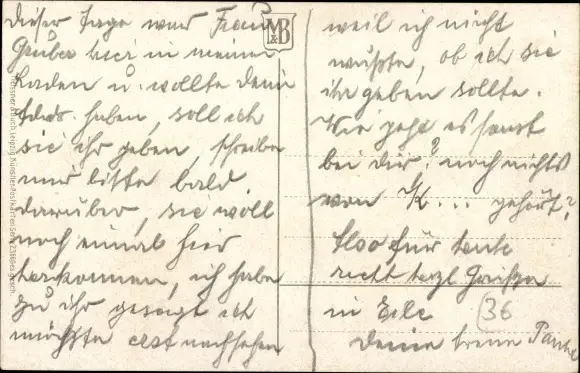 Dieser Tage war Frau
Gruber hier in meinem
Laden u. wollte deine
haben, soll ich
sie ihr geben, schreibe
mir bitte bald
darüber, sie woll
noch einmal hier
herkommen, ich habe
zu ihr gesagt ich
möchte erst nachsehen
M&B
weil ich nicht
wußte, ob ich sie
ihr geben sollte.
Wie geht es sonst
bei dir? noch nichts
von K... gehört?
Also für heute
recht herzl Grüße
in Eile
36
Deine treue Tante